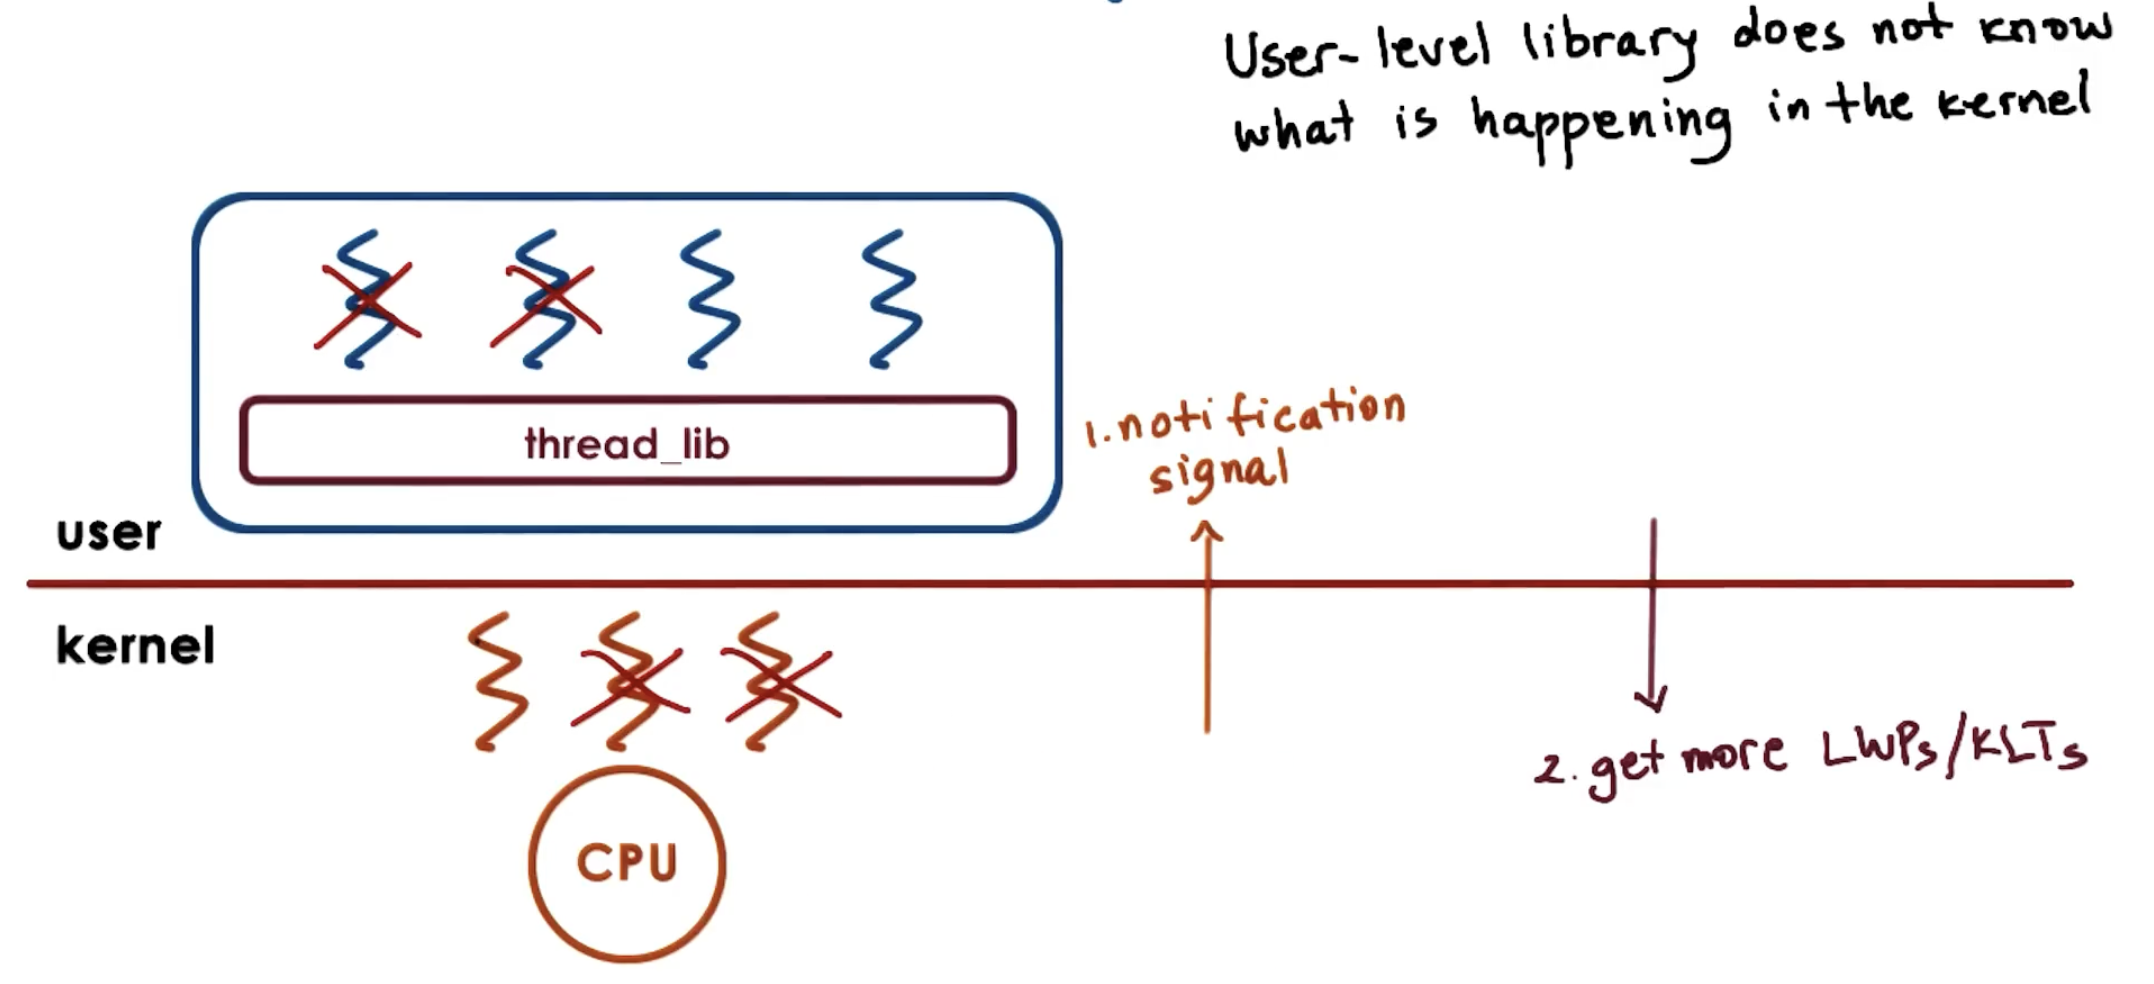 User-level library does not know
what is happening in the kernel
thread_lib
1. notification
signal
user
kernel
2. get more LWPs/KLTs
CPU